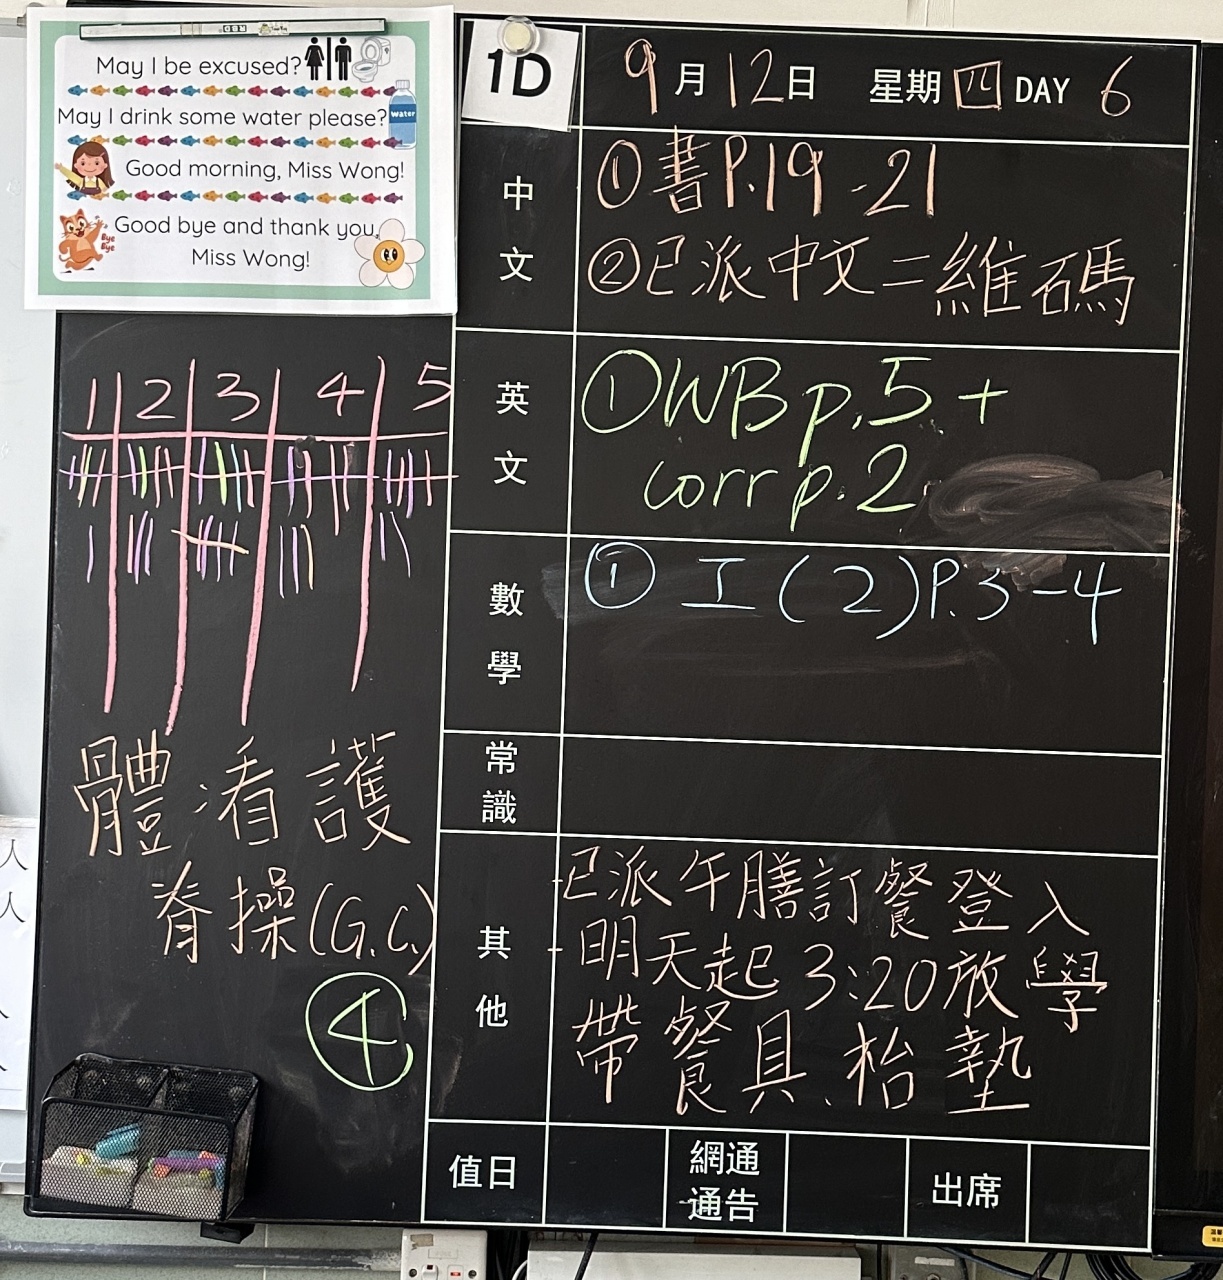 May I be excused?
May I drink some water please?
Water
Good morning, Miss Wong!
Good bye and thank you,
Bye Bye
Miss Wong!
1D
9月12日 星期四 DAY 6
中文
①書P.19-21
②已派中文二維碼
英文
①WB p.5 +
corr p.2
數學
① 工(2)P.3-4
常識
其他
-已派午膳訂餐登入
-明天起3:20放學
帶餐具、枱墊
值日
網通
通告
出席
1 2 3 4 5
體:看護
脊操(G.C.)
④